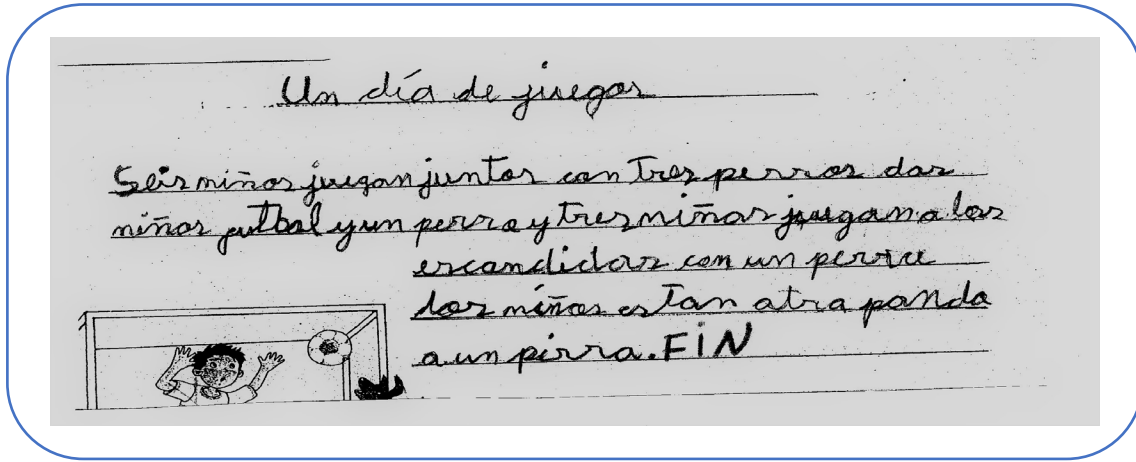 Un día de juegos
Seis niños juegan juntos con Tres perros dos
niños futbol y un perro y tres niños juegan a los
escondidos con un perro
los niños es Tan atra pando
a un perro. FiN